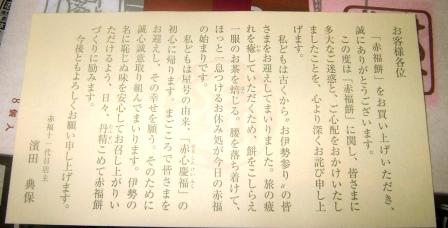 お客様各位
「赤福餅」をお買い上げいただき、
誠にありがとうございます。
この度は「赤福餅」に関し、皆さまに
多大なご迷惑と、ご心配をおかけいたし
ましたことを、心より深くお詫び申し上
げます。
私どもは古くから〝お伊勢参り〟の皆
さまをお迎えしてまいりました。旅の疲
れを癒していただくため、餅をこしらえ
一服のお茶を焙じる。腰を落ち着けて、
ほっと一息つけるお休み処が今日の赤福
の始まりです。
私どもは屋号の由来、「赤心慶福」の
初心に帰ります。まごころで皆さまを
お迎えし、その幸せを願う。そのために
誠心誠意取り組んでまいります。伊勢の
名に恥じぬ味を安心してお召し上がりい
ただけるよう、日々、丹精こめて赤福餅
づくりに励みます。
今後ともよろしくお願い申し上げます。
赤福十一代目店主
濱田 典保
8個入